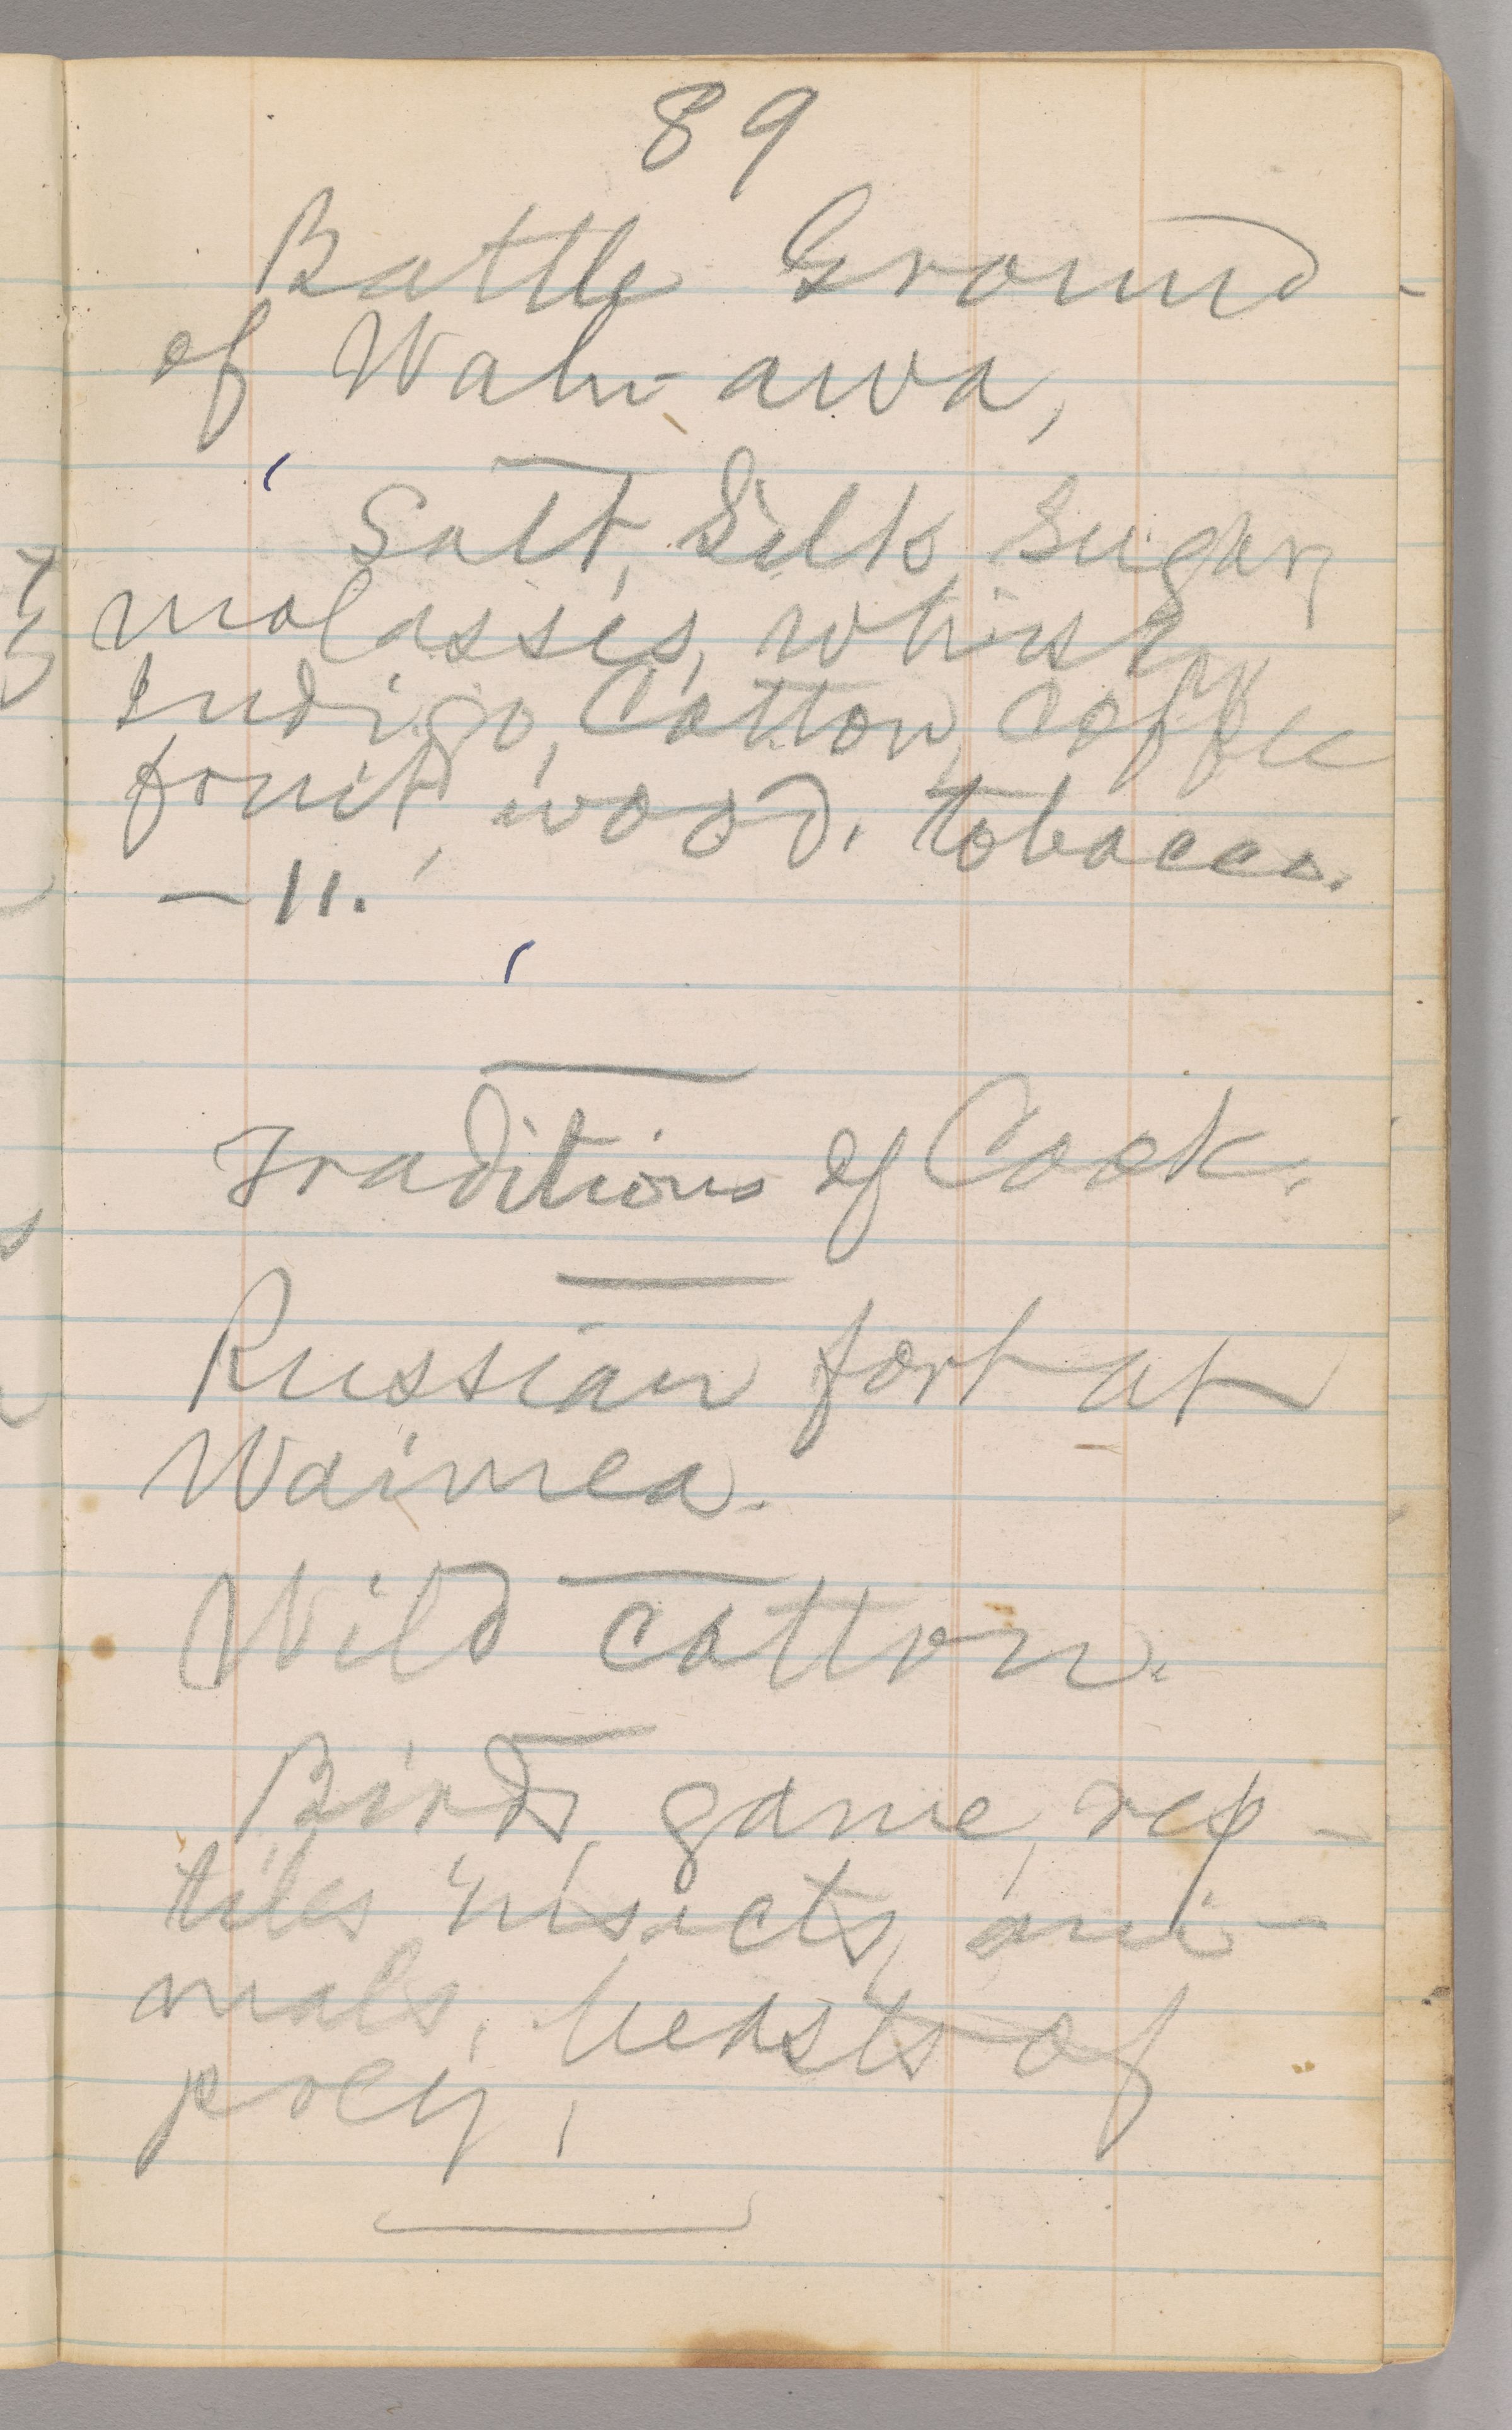 89
Battle Ground
of Wahi-awa,
Salt, Silk, Sugar,
molasses, whisky,
Indigo, Cotton, Coffee
fruit, wood, tobacco.
— 11.
Traditions of Cook.
Russian fort at
Waimea.
Wild cotton.
Birds, game, rep-
tiles insects, ani-
mals, beasts of
prey,